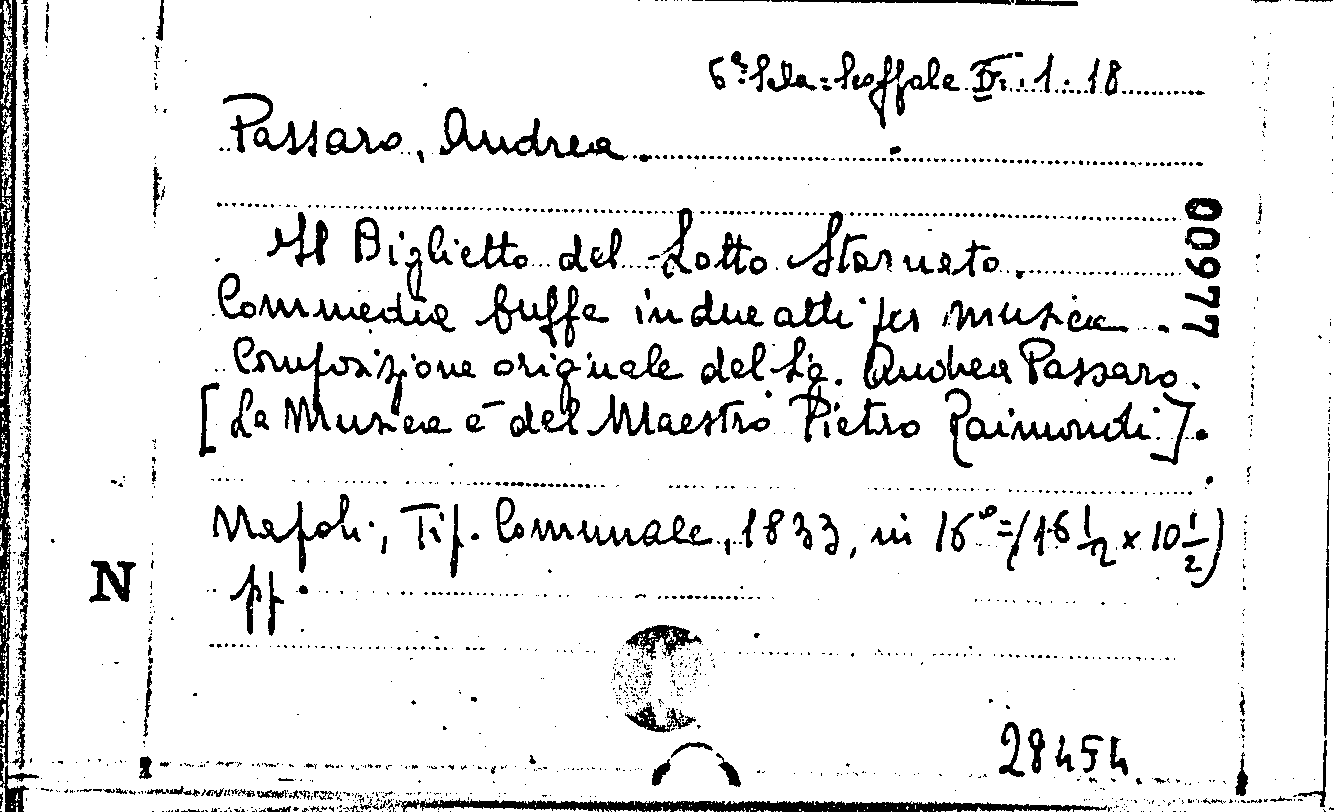 6ª Sala = Scaffale IV. 1. 18
Passaro, Andrea.
Il Biglietto del Lotto Stornato.
Commedia buffa in due atti per musica.
Composizione originale del Sig. Andrea Passaro.
[La Musica è del Maestro Pietro Raimondi].
Napoli, Tip. Comunale, 1833, in 16º = (16 1/2 x 10 1/2)
pp.
00977
N
28454